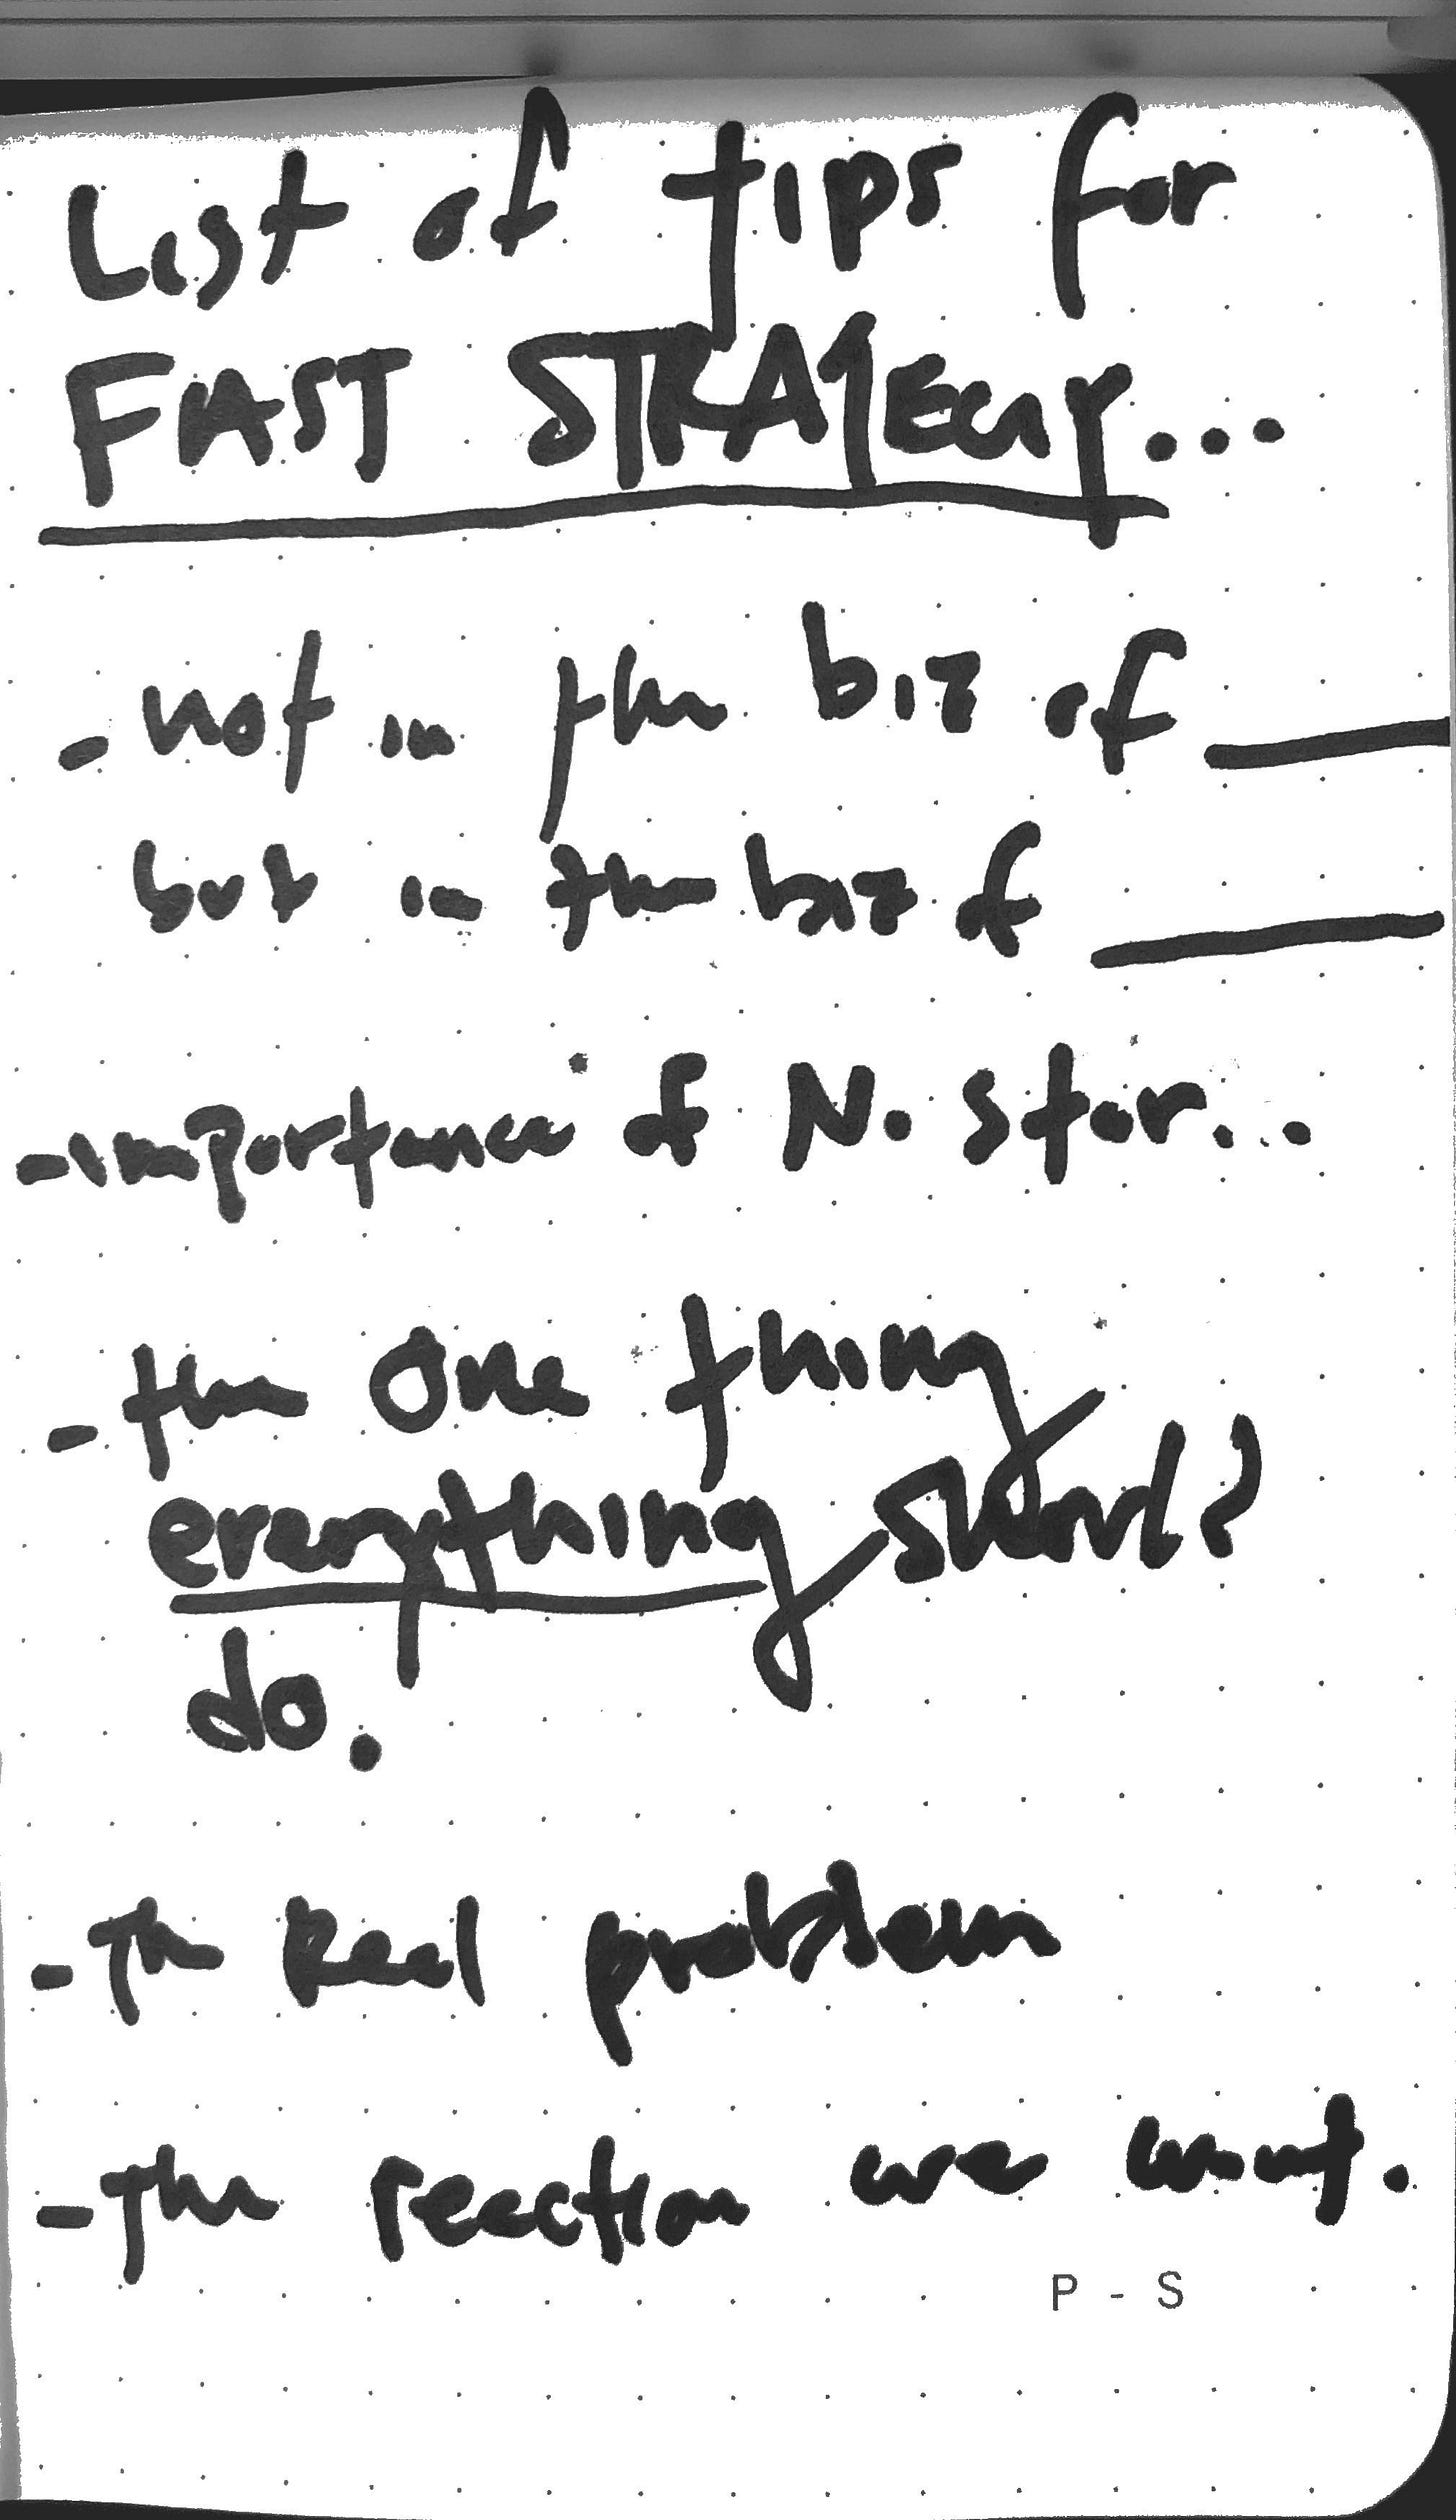 List of tips for
FAST STRATEGY...
- not in the biz of ____
but in the biz of ____
- importance of N. Star...
- the One thing
everything should?
do.
- The Real problem
- The reaction we want.
P - S